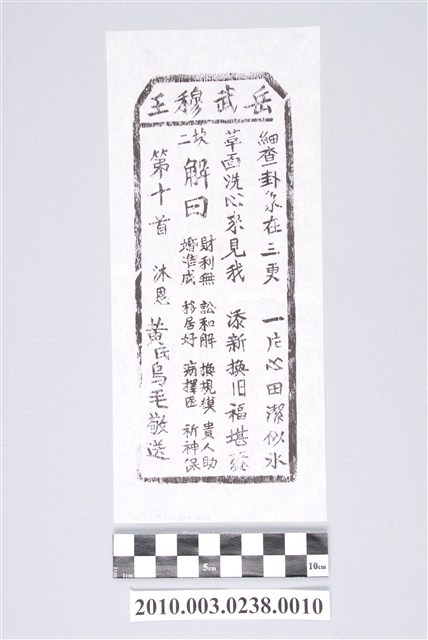 岳武穆王
細查卦象在三更 一片心田潔似氷
革面洗心來見我 添新換旧福堪
坎二
解曰
財利無 訟和解 換規模 貴人助
婚准成 移居好 病擇医 祈神保
第十首 沐恩 黃氏烏毛敬送
1cm 5cm 10cm
2010.003.0238.0010